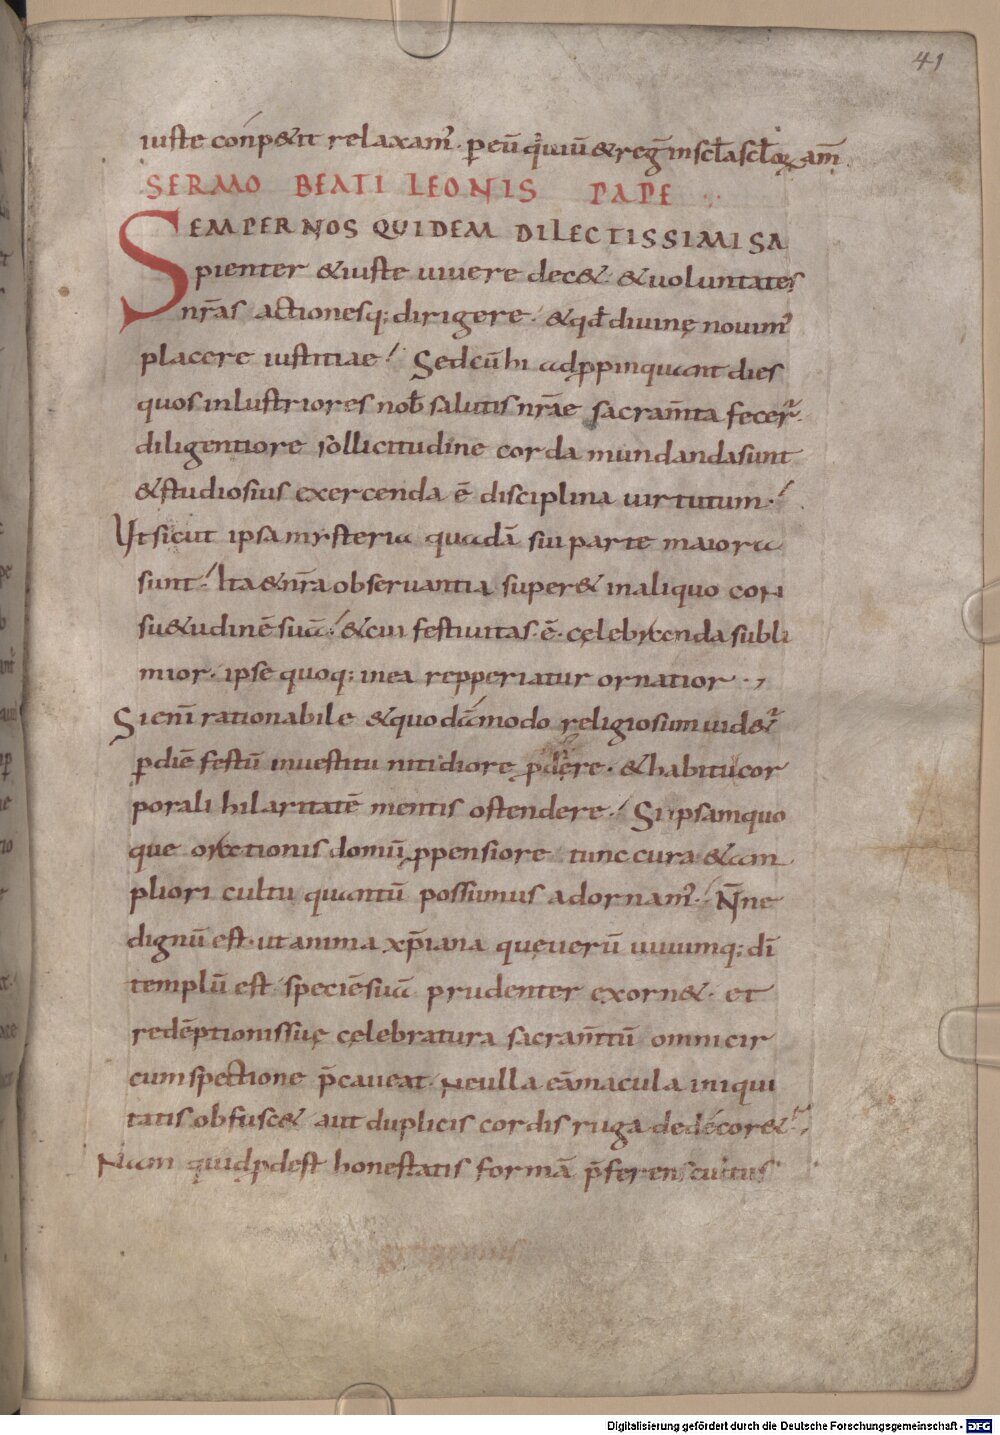 41
iuste conp&it relaxam᷒. p eū q̇ iuiū & reg̅ in scl̅a scl̅oꝝ am̅.
SERMO BEATI LEONIS PAPE
SEMPER NOS QUIDEM DILECTISSIMI SA
pienter & iuste uiuere dec&. & uoluntates
nr̅as actionesq; dirigere. & qd̅ diuinę nouim᷒
placere iustitiae! Sed cū hi adꝓpinquant dies
quos inlustriores nob̅ salutis nr̅ae sacram̅ta fecer̅.
diligentiore sollicitudine corda mundanda sunt
& studiosius exercenda ē disciplina uirtutum.!
Ut sicut ipsa mysteria quadā sui parte maiora
sunt! Ita & nr̅a obseruantia super& in aliquo con
su&udinē suā! & cui festiuitas. ē. cęlebranda subli
mior. ipse quoq; in ea repperiatur ornatior.,
Si eni̅ rationabile & quodāmodo religiosum uid&̅
ꝑ diē festū in uestitu nitidiore ꝓdere. & habitu cor
porali hilaritatē mentis ostendere! Si ipsam quo
que orationis domū ꝓpensiore tunc cura & am
pliori cultu quantū possumus adornam᷒! N̅ne
dignū est. ut anima xp̅iana quę uerū uiuumq; di̅
templū est speciē suā prudenter exorn&. et
redēptionis suę cęlebratura sacram̅tū omni cir
cumspectione p̅caueat. Ne ulla eā macula iniqui
tatis obfusc& aut duplicis cordis ruga dedécor&.,
Nam quid ꝓdest honestatis formā p̅ferens cultus
Digitalisierung gefördert durch die Deutsche Forschungsgemeinschaft - DFG